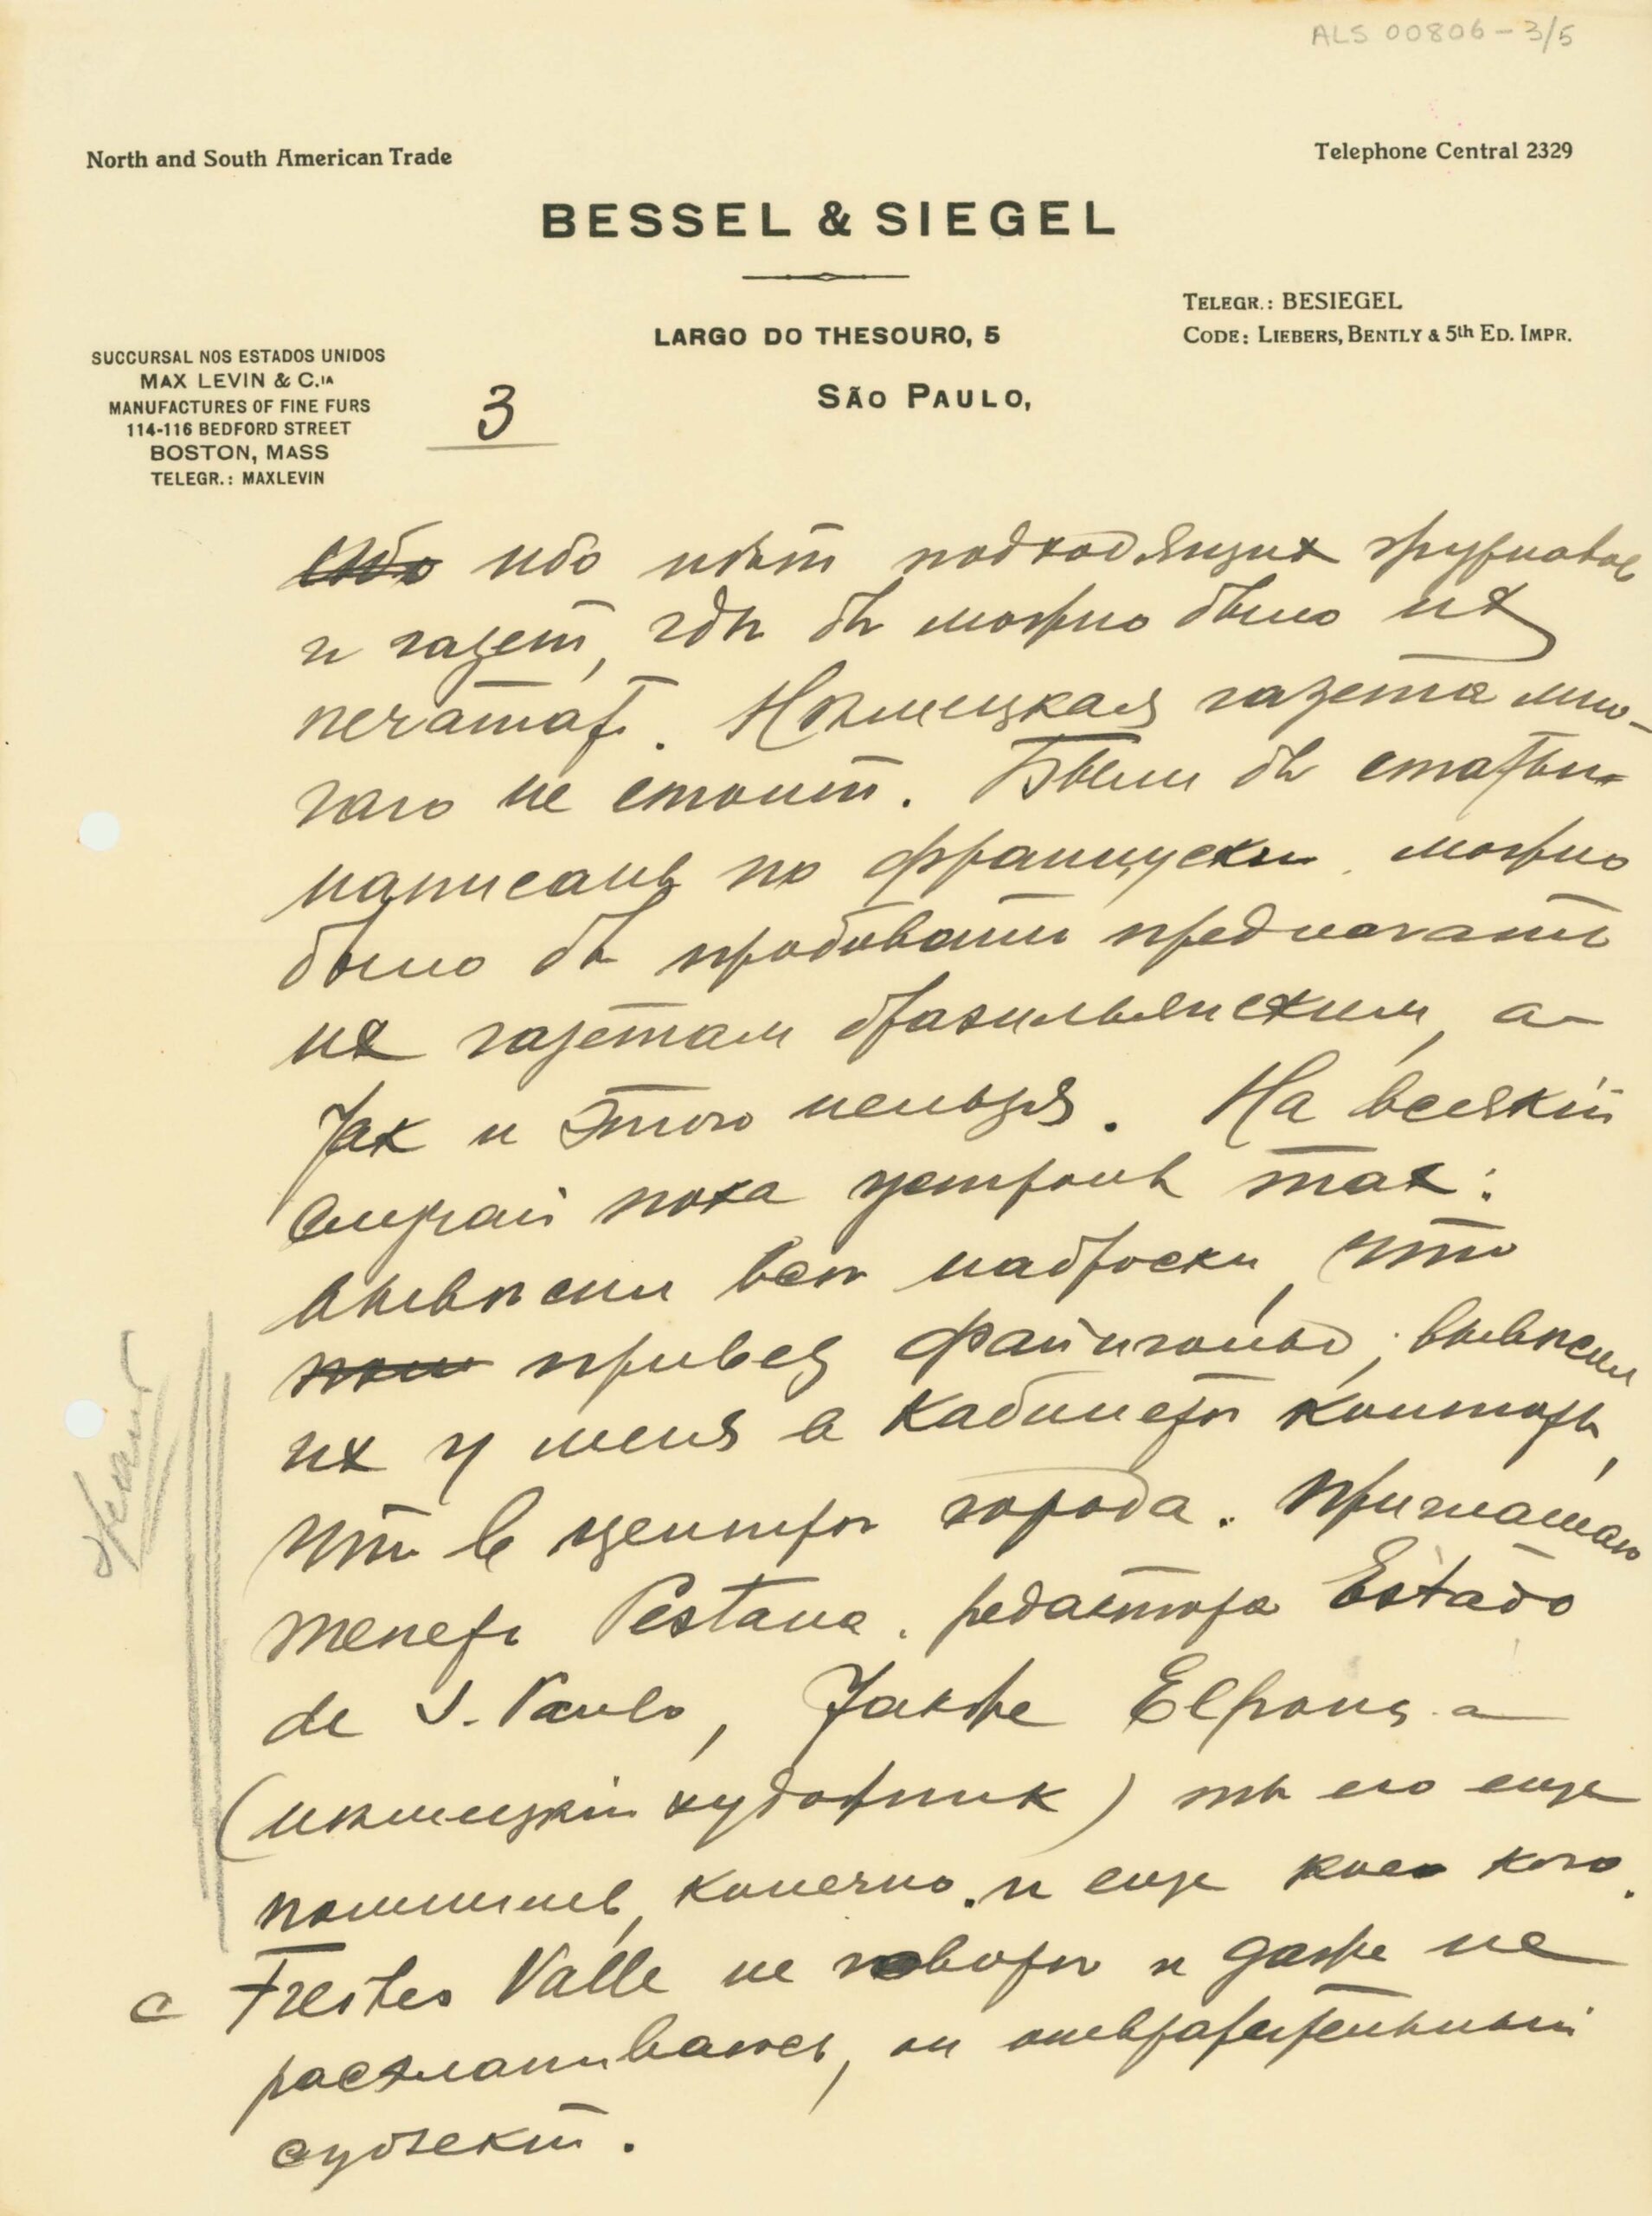 ALS 00806-3/5
North and South American Trade
Telephone Central 2329
BESSEL & SIEGEL
TELEGR.: BESIEGEL
CODE: LIEBERS, BENTLY & 5th ED. IMPR.
LARGO DO THESOURO, 5
SÃO PAULO,
SUCCURSAL NOS ESTADOS UNIDOS
MAX LEVIN & C.IA
MANUFACTURES OF FINE FURS
114-116 BEDFORD STREET
BOSTON, MASS
TELEGR.: MAXLEVIN
3
ибо нѣт подходящих журналов
и газет, гдѣ бы можно было их
печатать. Нѣмецкая газета мно-
гаго не стоит. Были бы статьи
написаны по французски, можно
было бы пробовать предлагать
их газетам бразильянским, а
так и этого нельзя. На всякій
случай пока устроил так:
вывѣсил всѣ наброски, что
привез Файнгольд, вывѣсил
их у меня в кабинетѣ конторы,
что в центрѣ города. Приглашаю
теперь Pestana, редактора Estado
de S. Paulo, также Elpons.а
(нѣмецкій художник) ты его еще
помнишь, конечно, и еще кое кого.
с Freitas Valle не говорю и даже не
раскланиваюсь, он отвратительный
субъект.